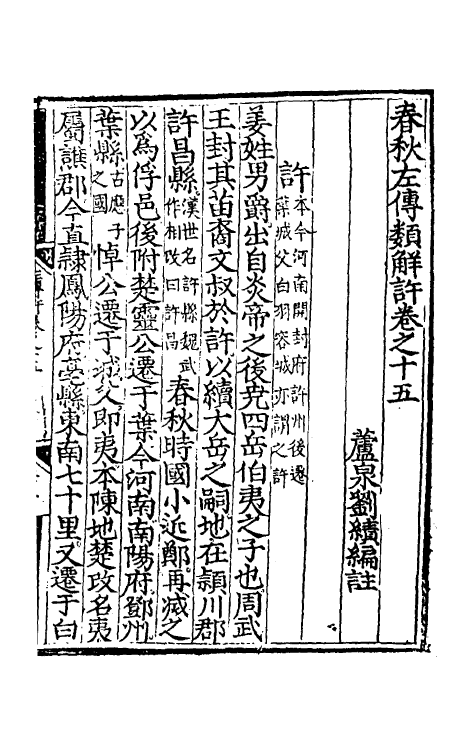 春秋左傳類解許卷之十五
蘆泉劉績編註
許本今河南開封府許州後遷
葉城父白羽容城亦謂之許
姜姓男爵出自炎帝之後尭四岳伯夷之子也周武
王封其苗裔文叔於許以續大岳之嗣地在頴川郡
許昌縣漢世名許縣魏武作相改曰許昌春秋時國小近鄭再滅之
以爲俘邑後附楚靈公遷于葉今河南南陽府鄧州
葉縣古應子之國悼公遷于城父即夷本陳地楚改名夷
屬譙郡今直隷鳳陽府亳縣東南七十里又遷于白